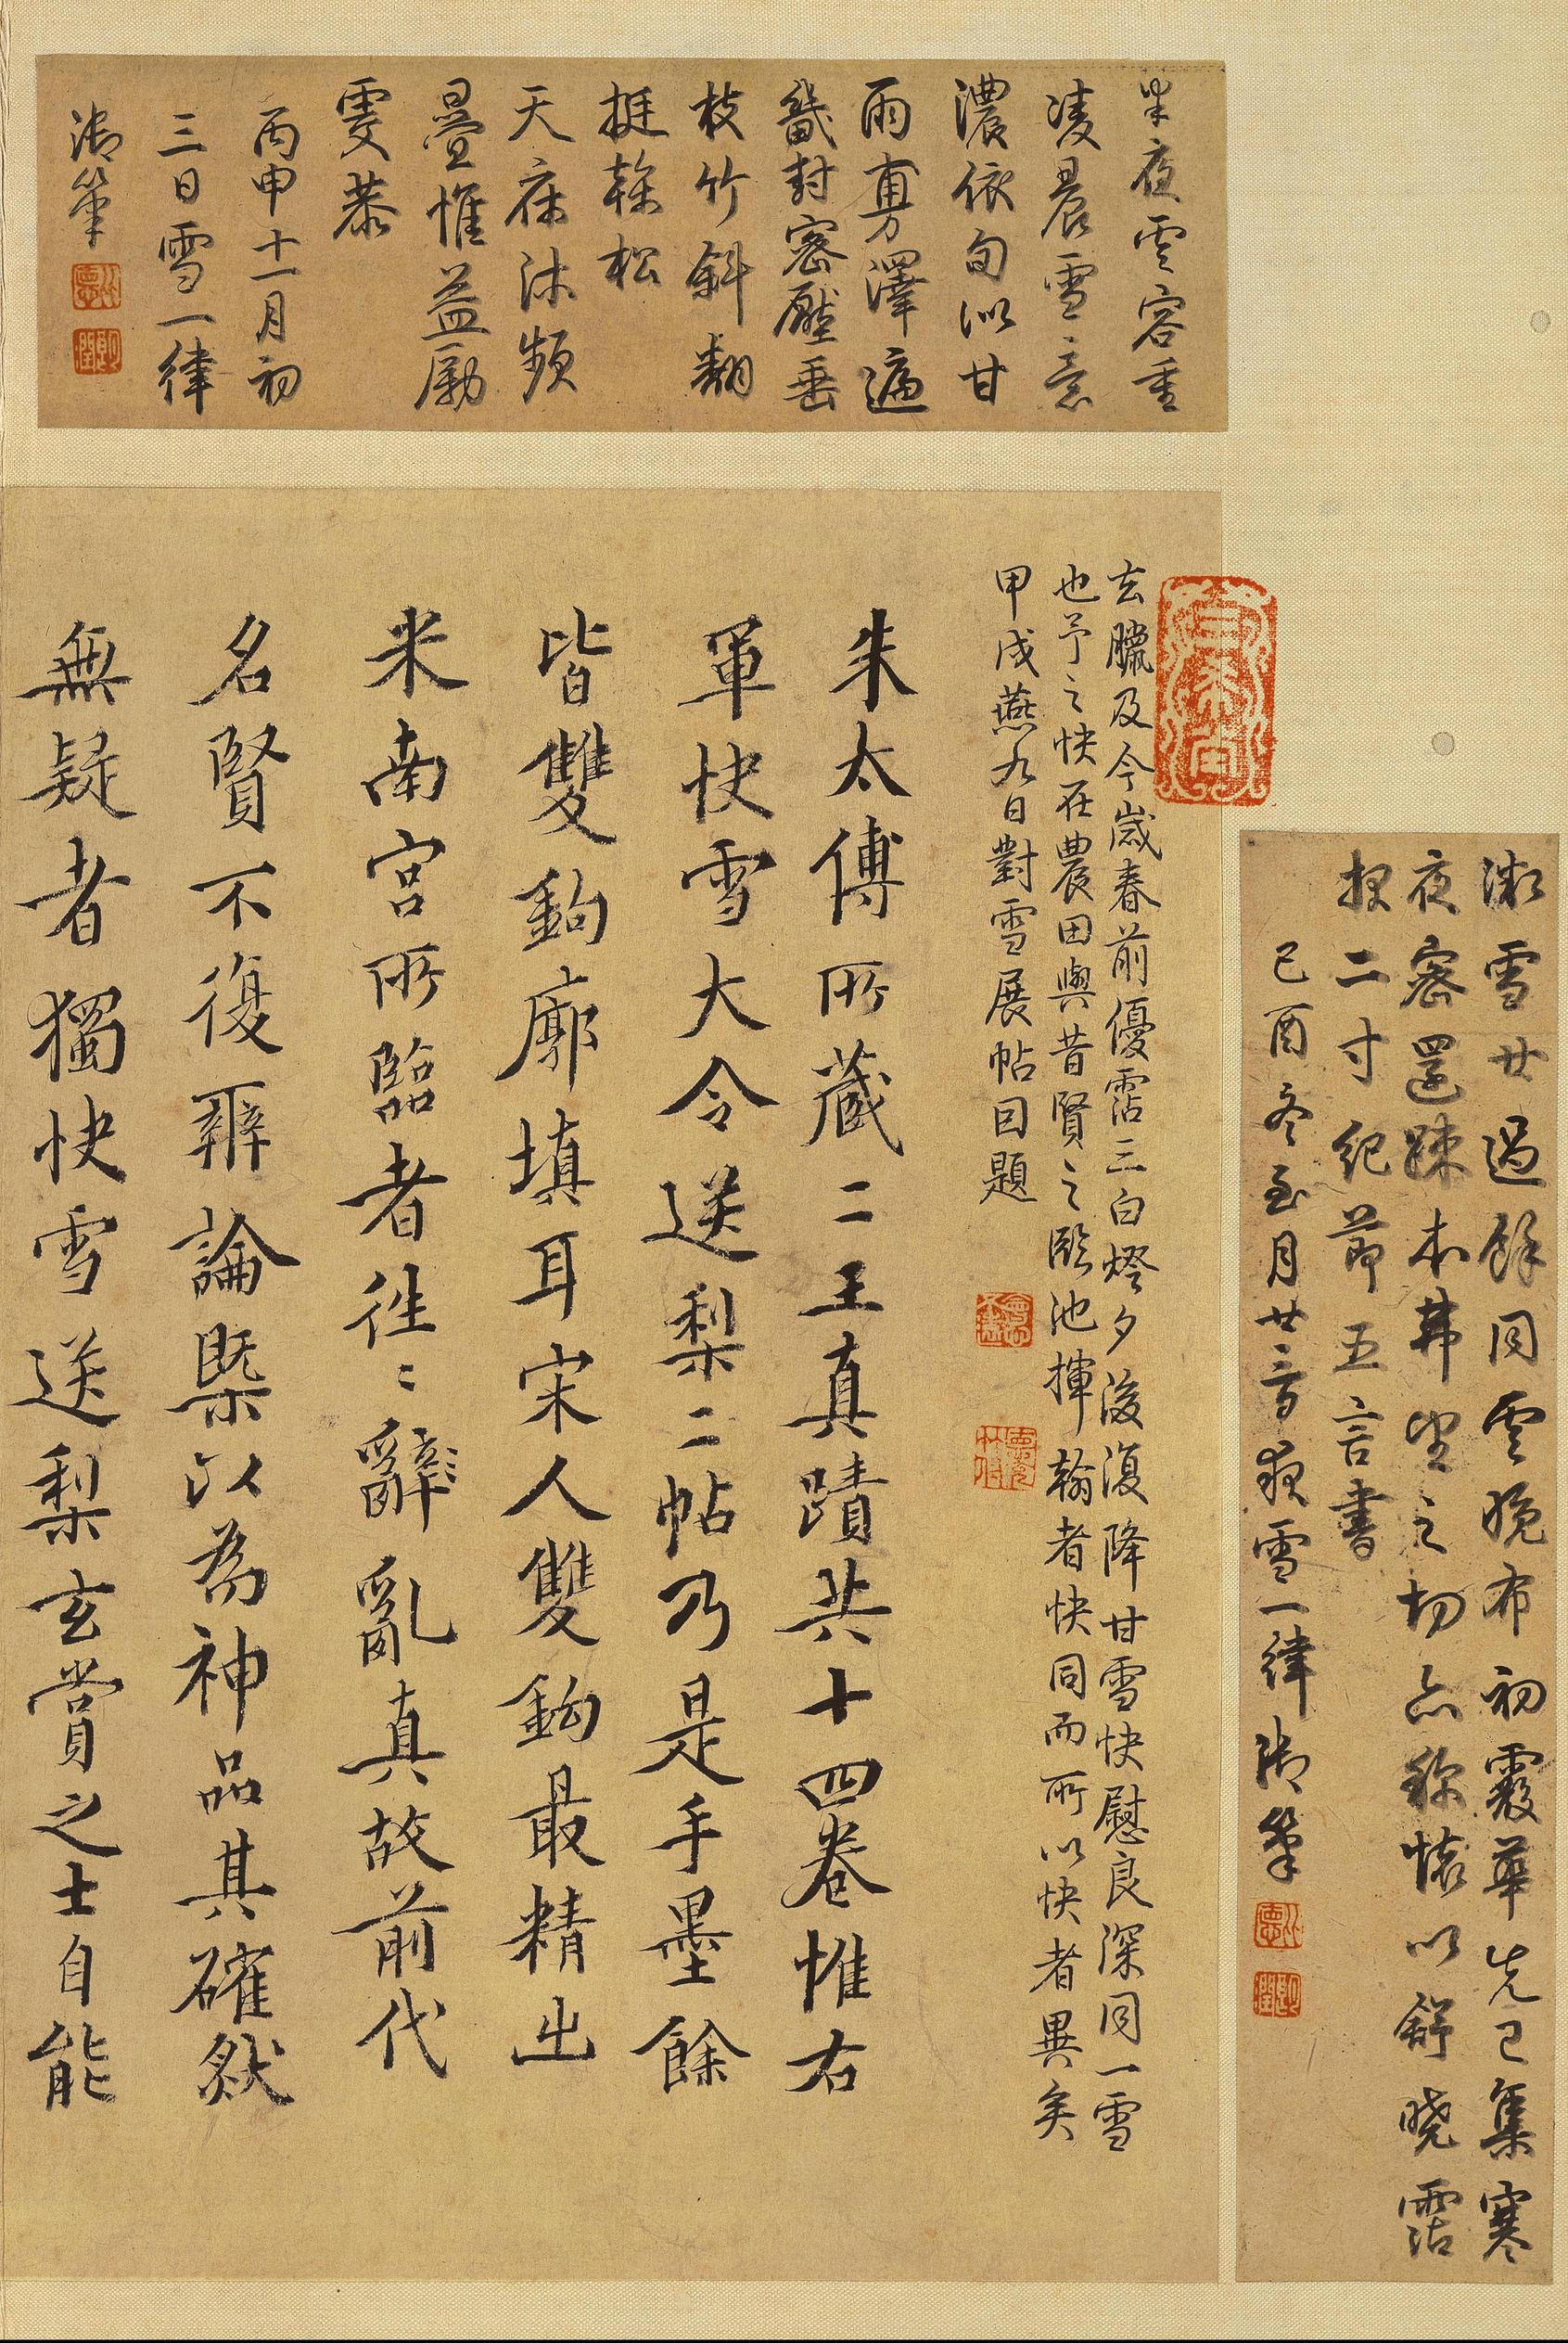 半夜雲容重
凌晨雪意
濃依旬沾甘
雨
澤遍
畿封密壓垂
枝竹斜翻
挺幹松
天庥沐頻
疊惟益勵
雯恭
丙申十一月初
三日雪一律
御筆
微雪廿過餘同雲晚布初霰華先已集寒
夜密還踈未弗望之切亦稱懷以舒曉霑
二寸紀節五言書
己酉冬至月廿夜雪一律御筆
去臘及今歲春前優霑三白燈夕後復降甘雪快慰良深同一雪
也予之快在農田與昔賢之臨池揮翰者快同而所以快者異矣
甲戌燕九日對雪展帖因題
朱太傅所藏二王真蹟共十四卷惟右
軍快雪大令送梨二帖乃是手墨餘
皆雙鉤廓填耳宋人雙鉤最精出
米南宮所臨者往往亂真故前代
名賢不復辨論槩以為神品其確然
無疑者獨快雪送梨玄賞之士自能